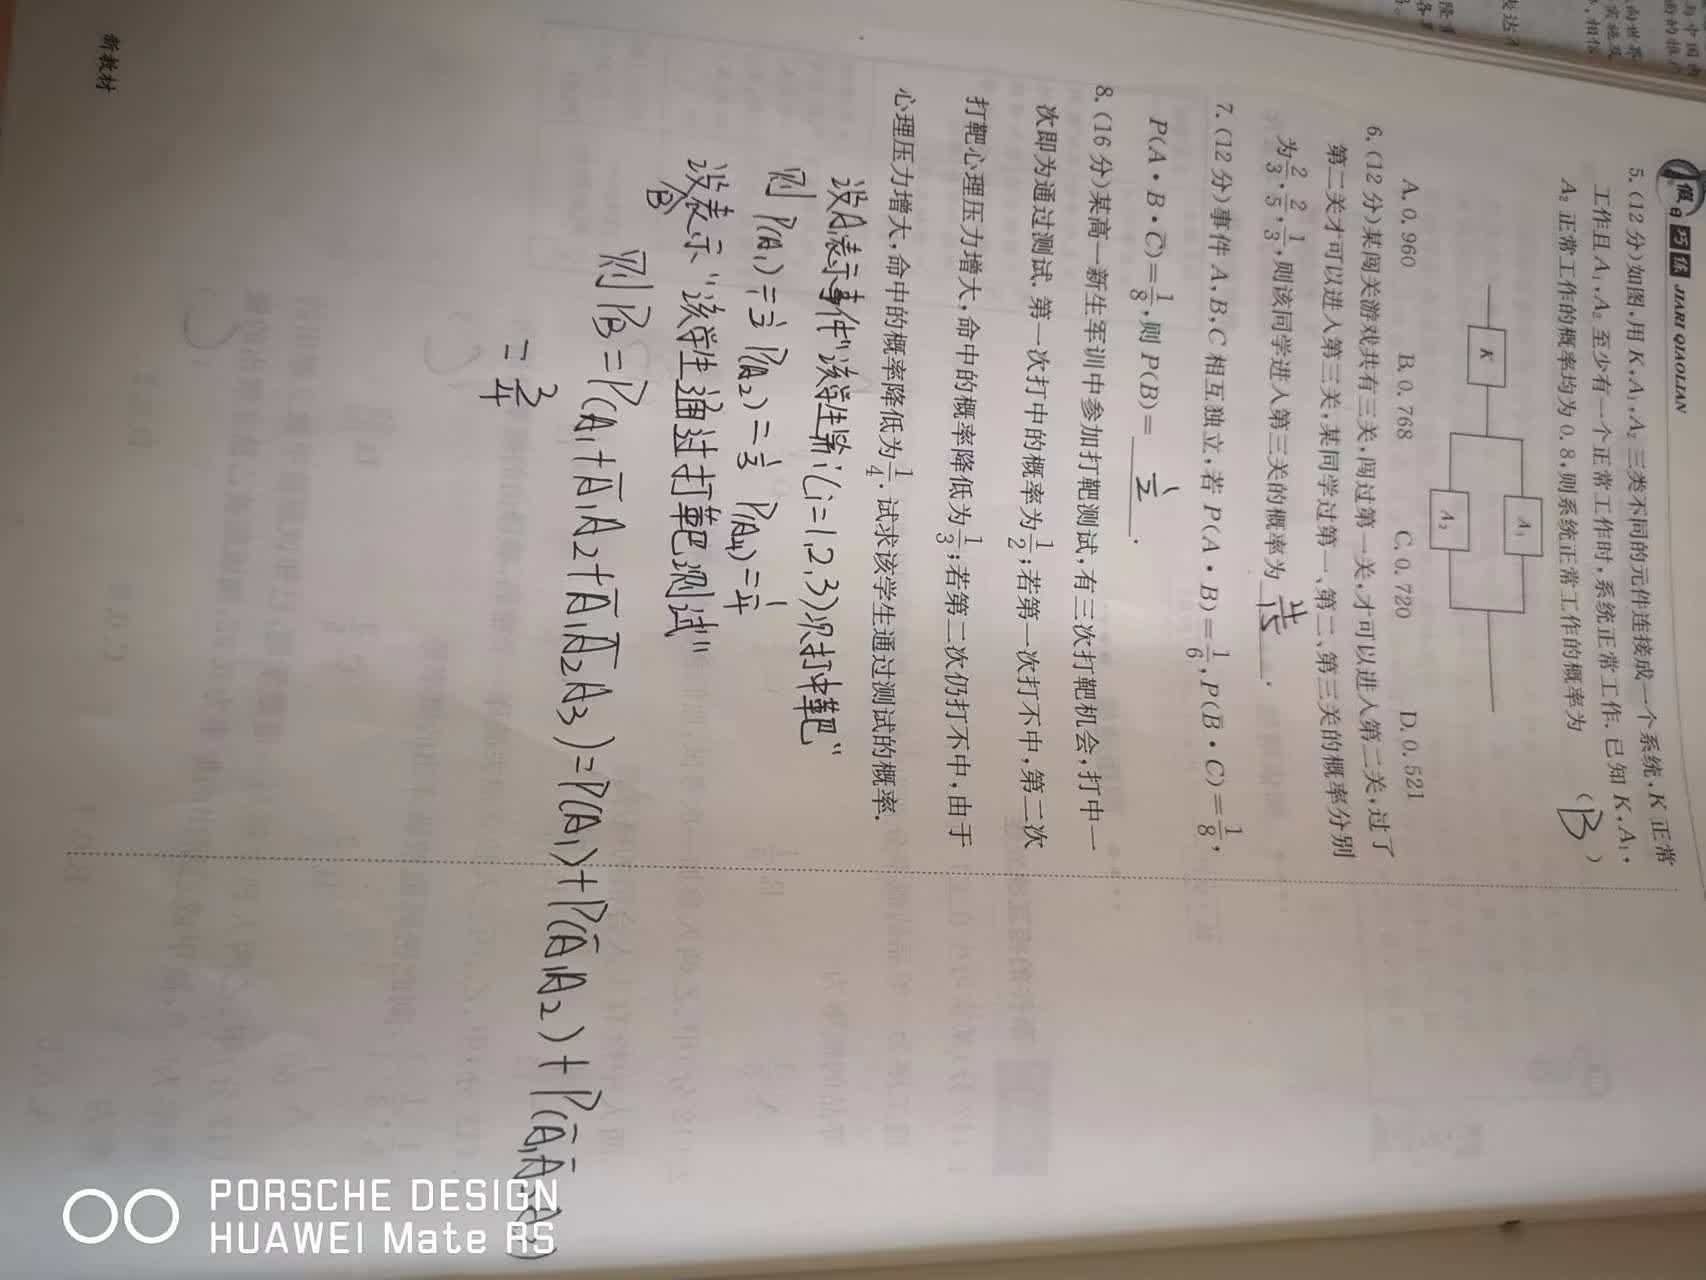 假日巧练 JIARI QIAOLIAN
5.(12分)如图,用K,A₁,A₂三类不同的元件连接成一个系统,K正常
工作且A₁,A₂至少有一个正常工作时,系统正常工作.已知K,A₁,
A₂正常工作的概率均为0.8,则系统正常工作的概率为 ( B )
K
A₁
A₂
A.0.960 B.0.768 C.0.720 D.0.521
6.(12分)某闯关游戏共有三关,闯过第一关,才可以进入第二关,过了
第二关才可以进入第三关,某同学过第一、第二、第三关的概率分别
为2/3,2/5,1/3,则该同学进入第三关的概率为 4/15 .
7.(12分)事件A,B,C相互独立,若P(A·B)=1/6,P(B̄·C)=1/8,
P(A·B·C̄)=1/8,则P(B)= 1/2 .
8.(16分)某高一新生军训中参加打靶测试,有三次打靶机会,打中一
次即为通过测试.第一次打中的概率为1/2;若第一次打不中,第二次
打靶心理压力增大,命中的概率降低为1/3;若第二次仍打不中,由于
心理压力增大,命中的概率降低为1/4.试求该学生通过测试的概率.
设Aᵢ表示事件“该学生第i(i=1,2,3)次打中靶”
则 P(A₁)=1/2 P(A₂)=1/3 P(A₄)=1/4
设B表示“该学生通过打靶测试”
则PB=P(A₁+Ā₁A₂+Ā₁Ā₂A₃)=P(A₁)+P(Ā₁A₂)+P(Ā₁Ā₂A₃)
=3/4
新教材
PORSCHE DESIGN
HUAWEI Mate RS